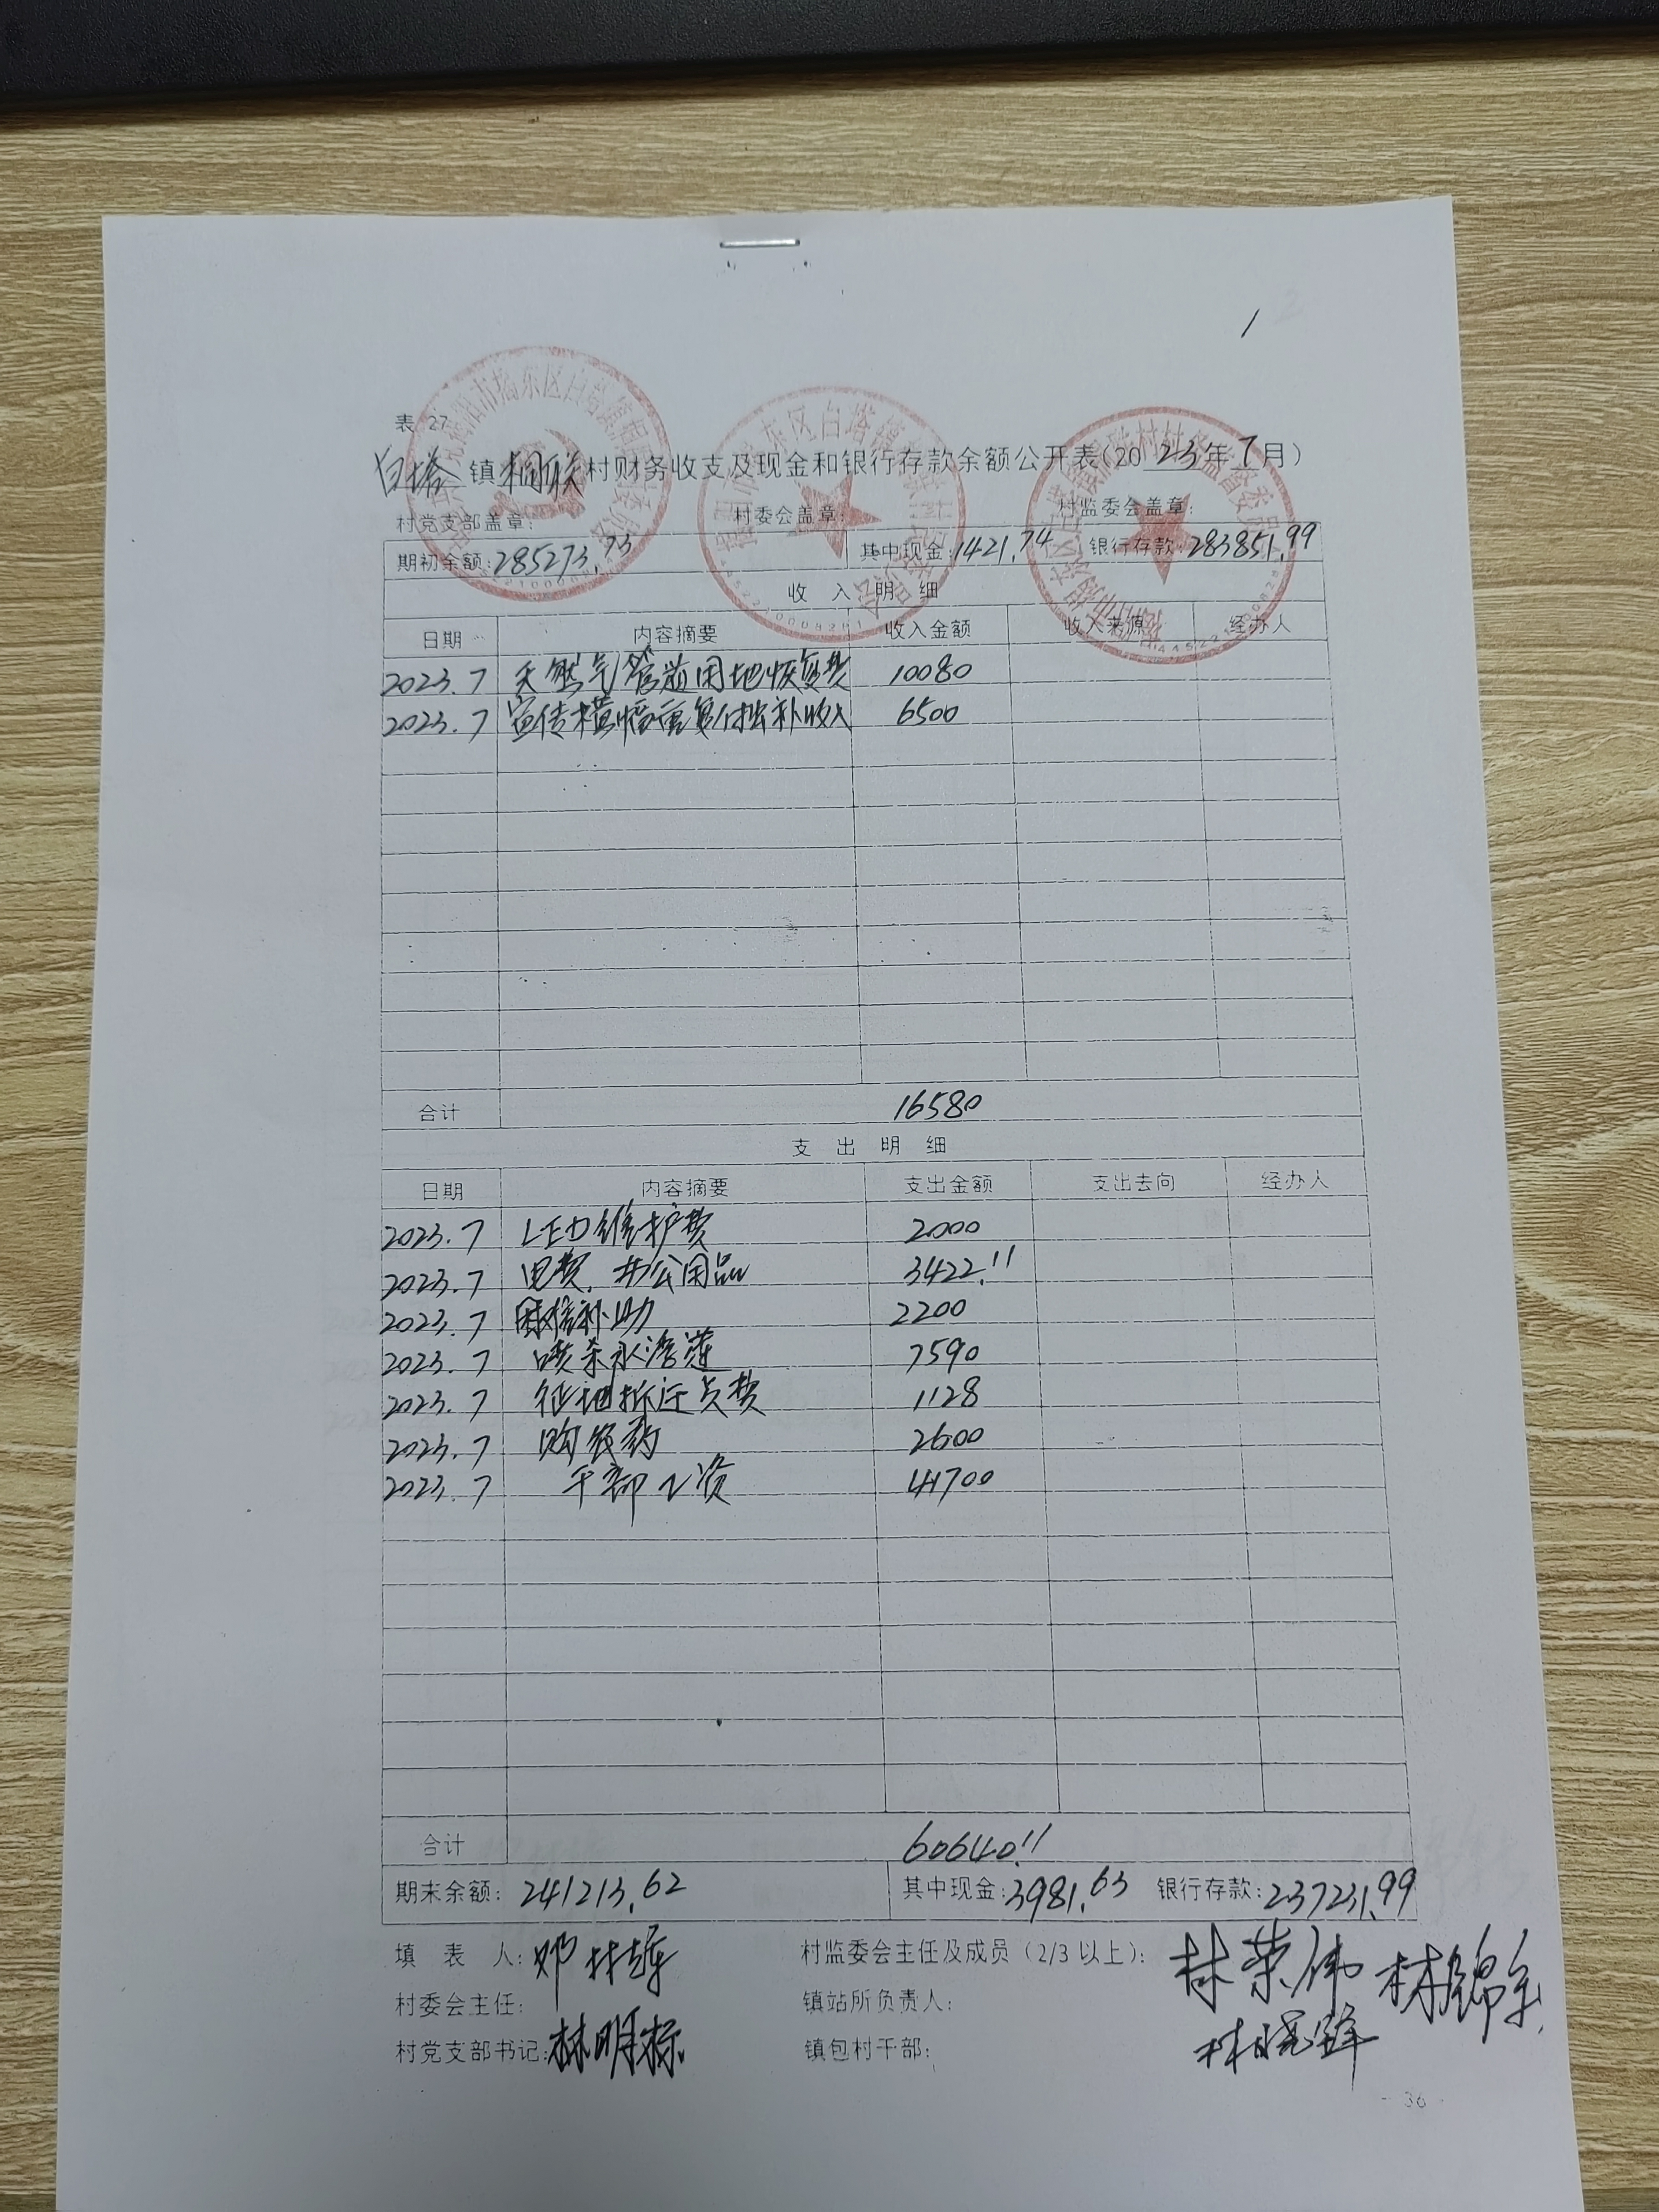 1
表 27
白塔镇桐联村财务收支及现金和银行存款余额公开表(2023年7月)
村党支部盖章: 村委会盖章: 村监委会盖章:
期初余额:285273.73 其中现金:1421.74 银行存款:283851.99
收 入 明 细
日期 内容摘要 收入金额 收入来源 经办人
2023.7 天然气管道用地恢复费 10080
2023.7 宣传横幅重复付出补收入 6500
合计 16580
支 出 明 细
日期 内容摘要 支出金额 支出去向 经办人
2023.7 LED维护费 2000
2023.7 电费、办公用品 3422.11
2023.7 补助 2200
2023.7 喷杀水浮莲 7590
2023.7 征地拆迁员费 1128
2023.7 购农药 2600
2023.7 干部工资 41700
合计 60640.11
期末余额: 241213.62 其中现金:3981.63 银行存款:237231.99
填 表 人: 邓林 村监委会主任及成员(2/3以上): 林荣伟 林锦
村委会主任: 镇站所负责人: 林晓锋
村党支部书记:林明标 镇包村干部:
- 36 -